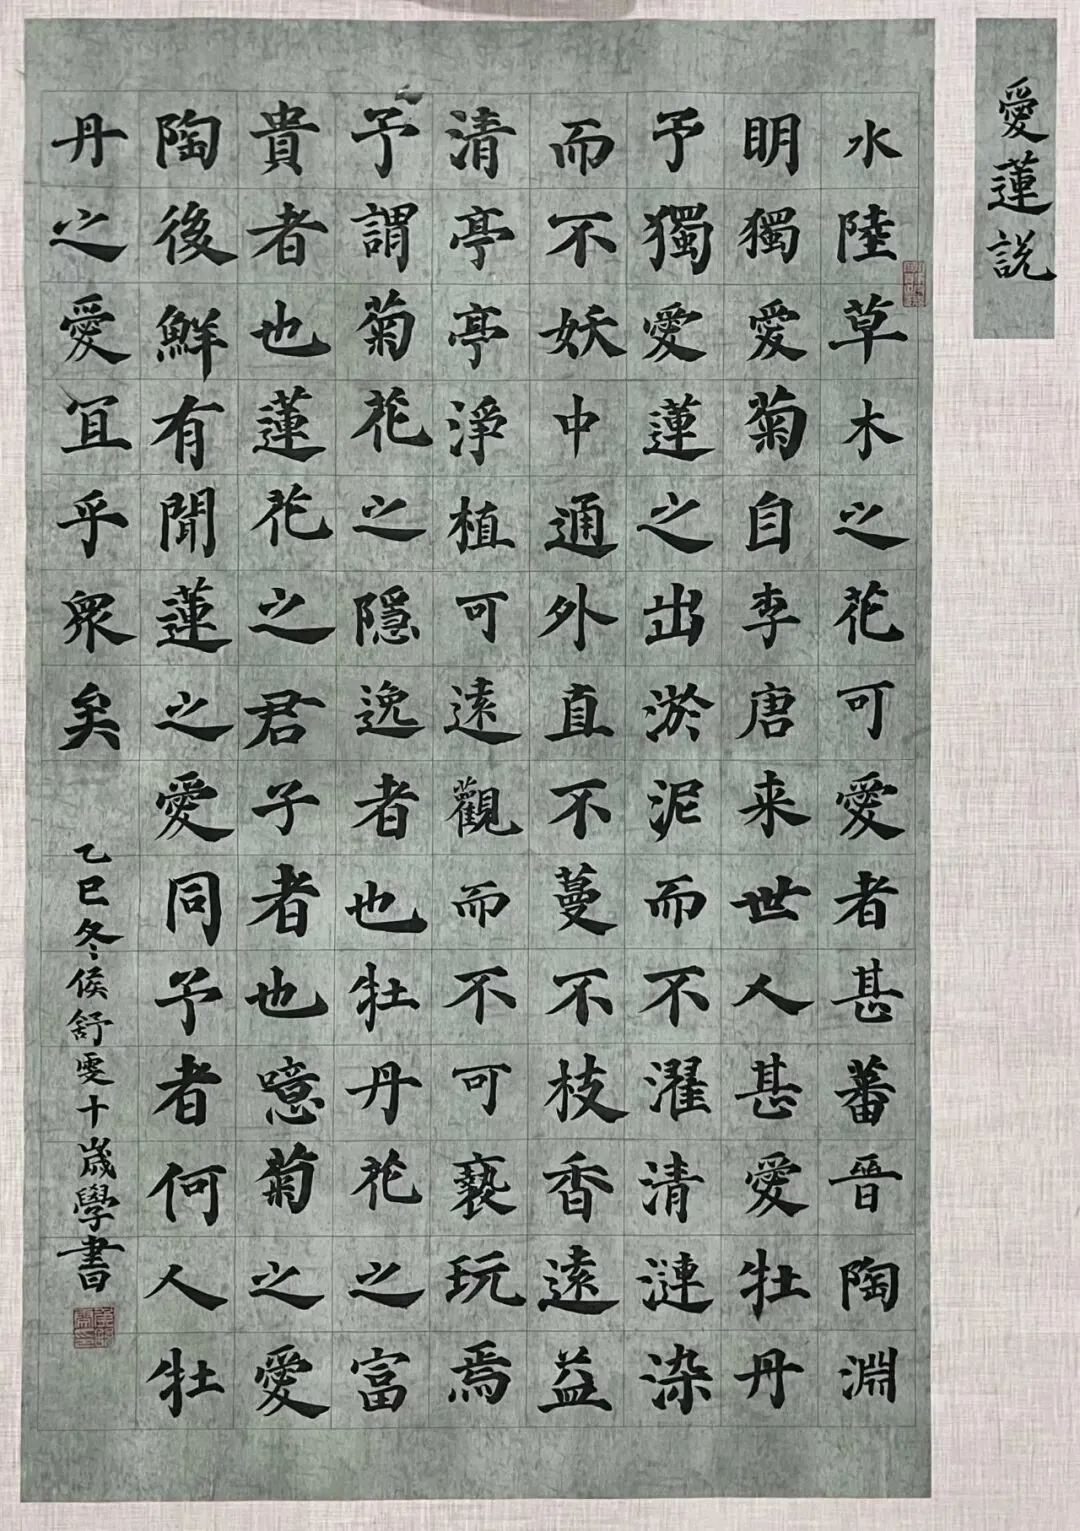 愛蓮説
水陸草木之花可愛者甚蕃晉陶淵
明獨愛菊自李唐来世人甚愛牡丹
予獨愛蓮之出淤泥而不濯清漣染
而不妖中通外直不蔓不枝香遠益
清亭亭淨植可遠觀而不可褻玩焉
予謂菊花之隱逸者也牡丹花之富
貴者也蓮花之君子者也噫菊之愛
陶後鮮有聞蓮之愛同予者何人牡
丹之愛宜乎眾矣
乙巳冬侯舒雯十歲學書